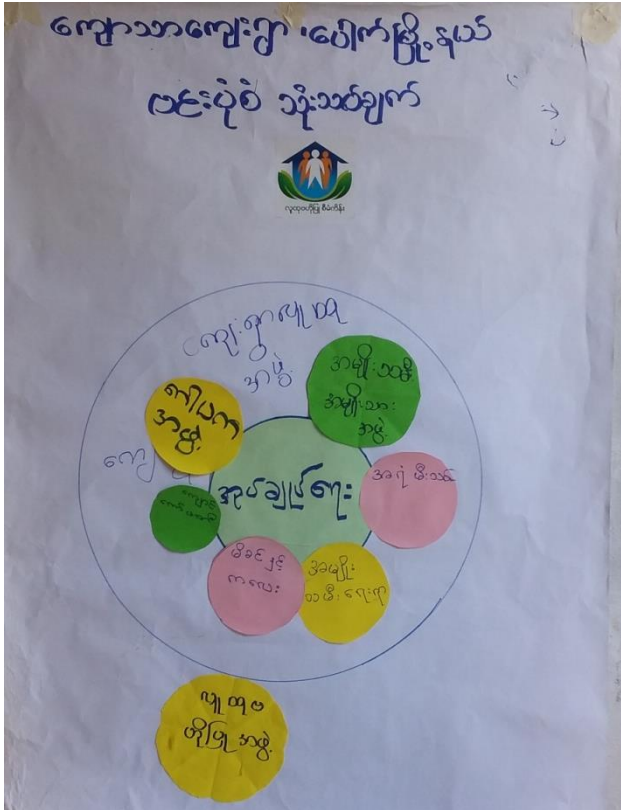 ကျောသာကျေးရွာ၊ပေါက်မြို့နယ်
ဗင်းပုံစံ သုံးသပ်ချက်
လူထုဗဟိုပြု စီမံကိန်း
ကျေးရွာလူထု
အဖွဲ့
အမျိုးသမီး
အမျိုးသား
အဖွဲ့
အဖွဲ့
အုပ်ချုပ်ရေး
အရံ မီးသတ်
မိခင်နှင့်
ကလေး
အမျိုး
သမီးရေးရာ
လူထုဗ
ဟိုပြု အဖွဲ့